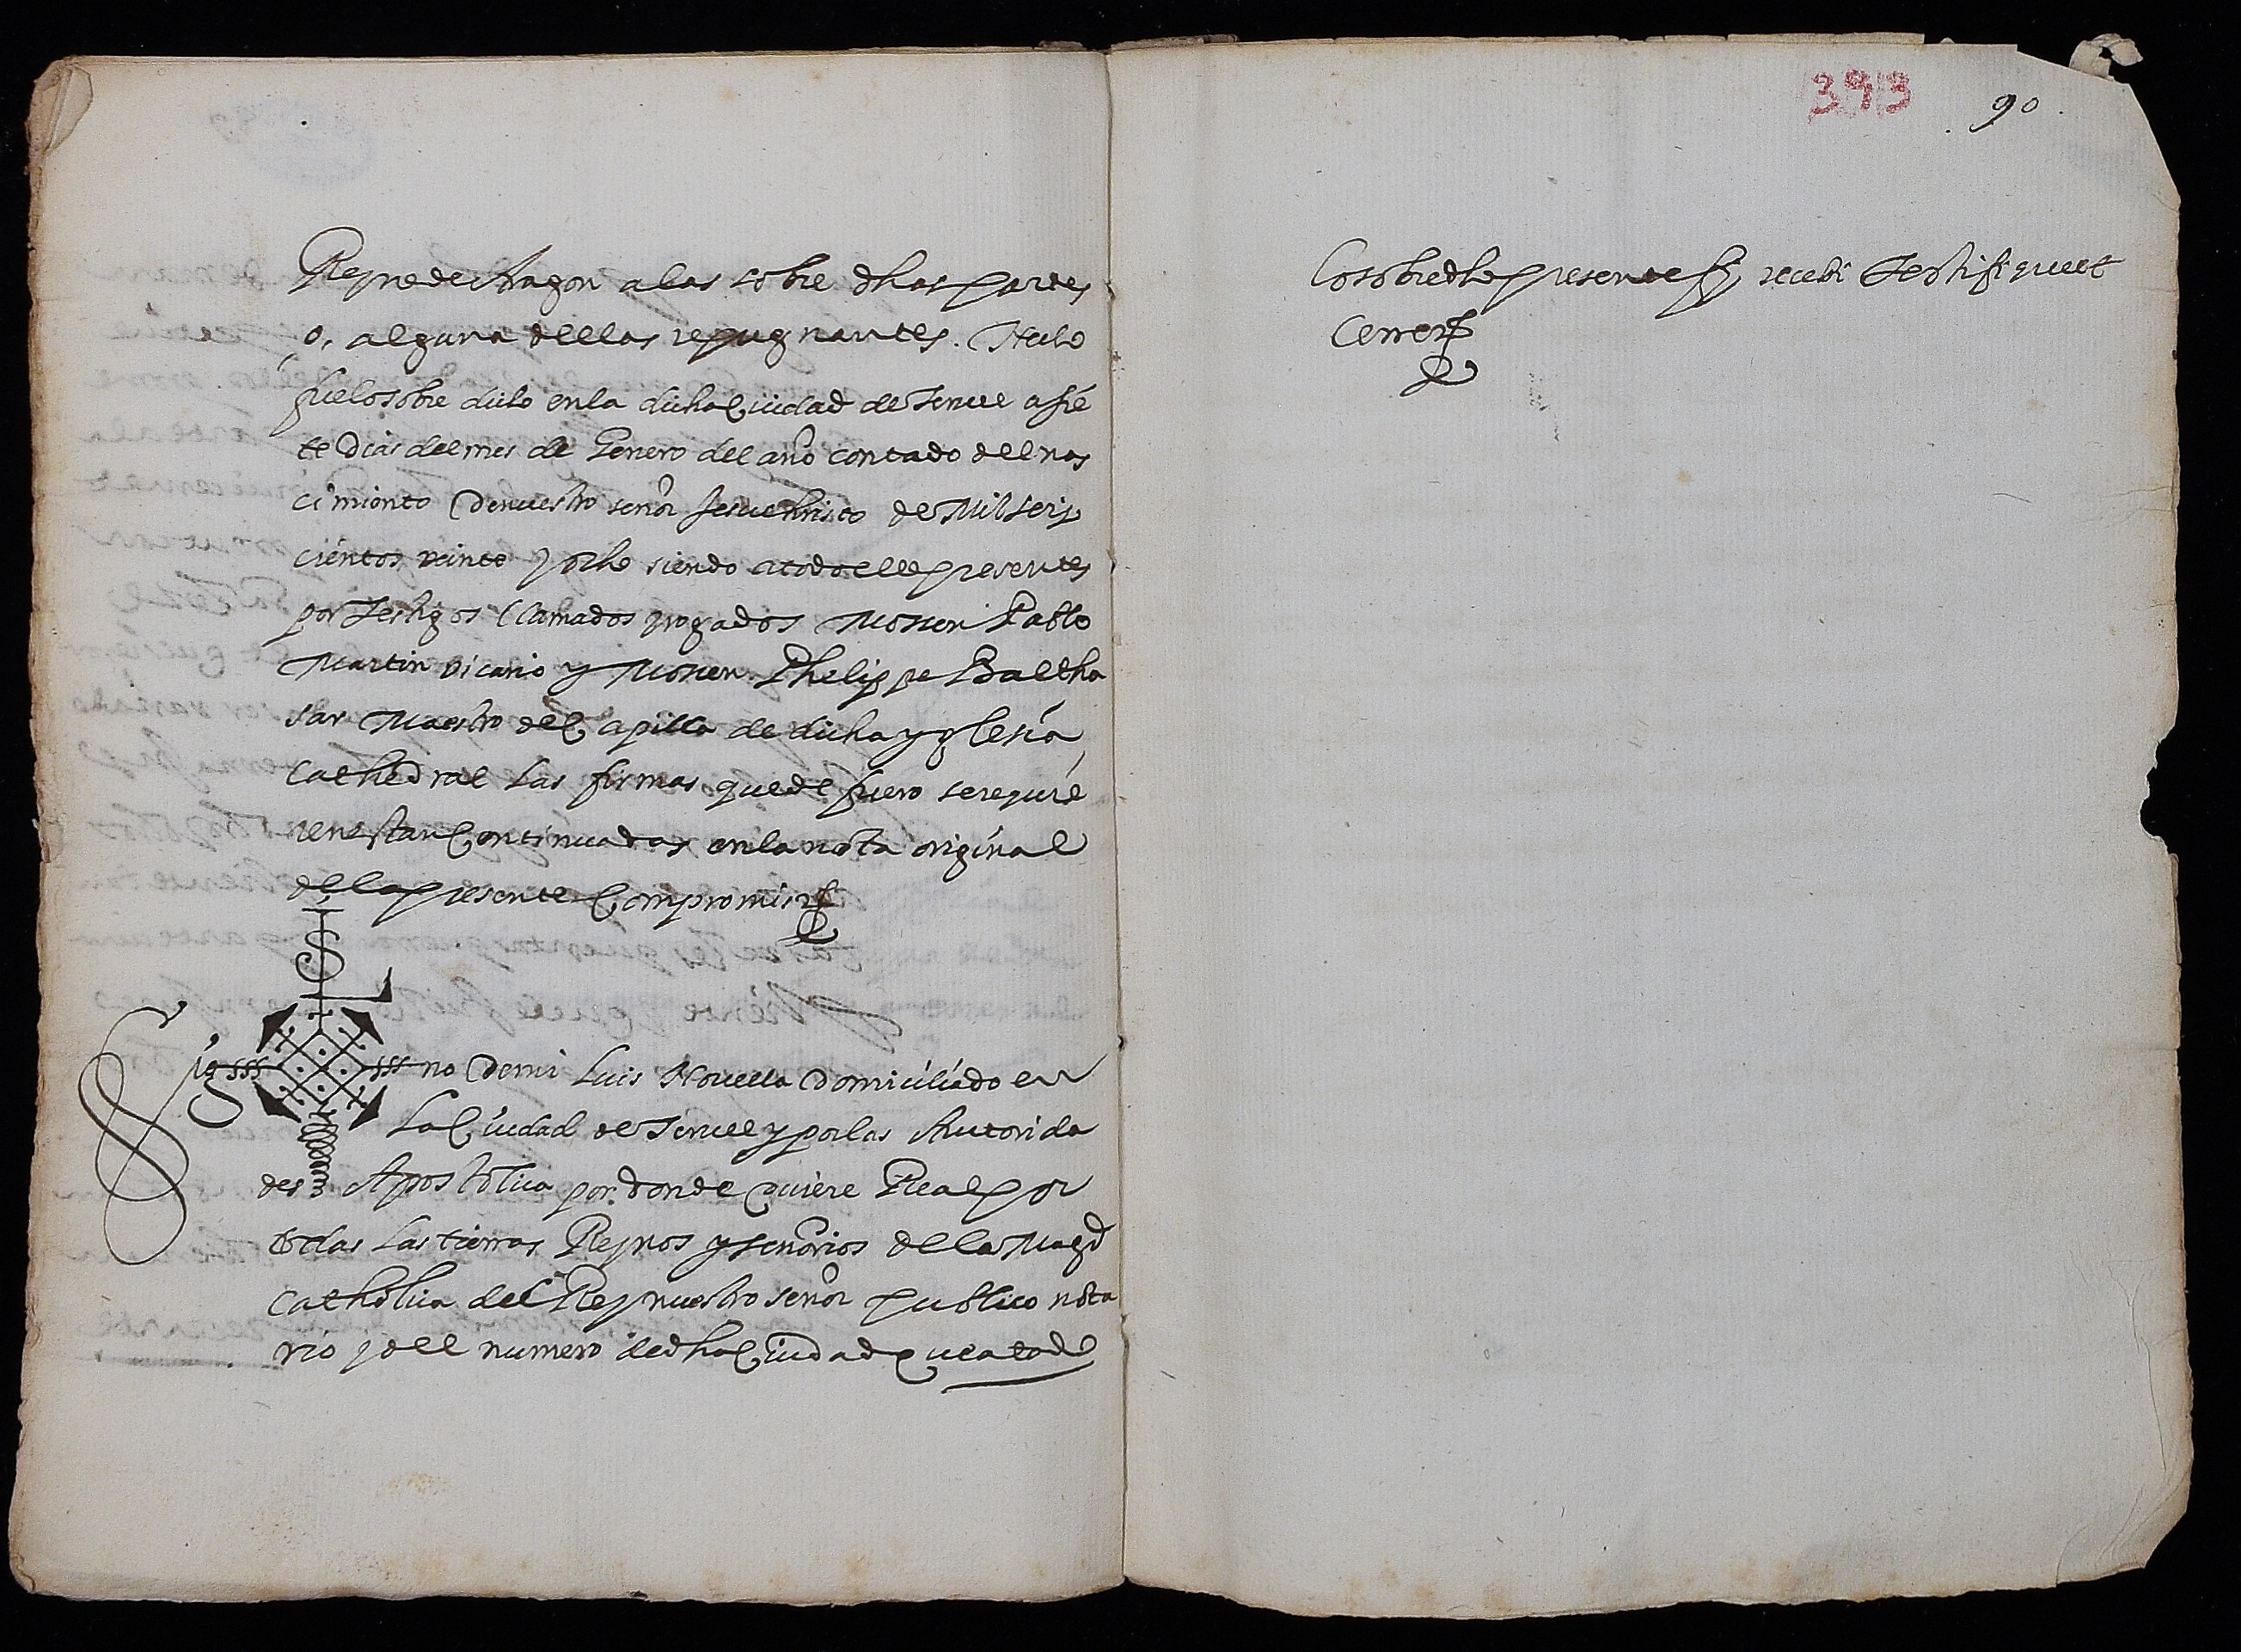 Reyno de Aragon a las sobre dhas partes
o, alguna dellas repugnantes. Hecho
fue lo sobre dicho en la dicha Ciudad de Teruel a sie
te dias del mes de Genero del año contado del nas
cimiento de nuestro señor Jesuchristo de Mil seis
cientos veinte y ocho siendo a todo ello presentes
por testigos llamados y rogados Mossen Pablo
Martin vicario y Mossen Phelippe Baltha
sar Maestro de Capilla de dicha yglesia
Cathedral Las firmas que de fuero se requie
ren estan Continuadas en la nota original
de la presente Compromis
Sig sss sss no de mi Luis Novella domiciliado en
La Ciudad de Teruel y por las Autorida
des Apostolica por donde quiere Real por
todas Las tierras Reynos y señorios de la Magd
Catholica del Rey nuestro señor publico nota
rio y del numero de dha Ciudad que a todo
393
90
Lo sobre dho presente fuy recebi testifique et
Cerre